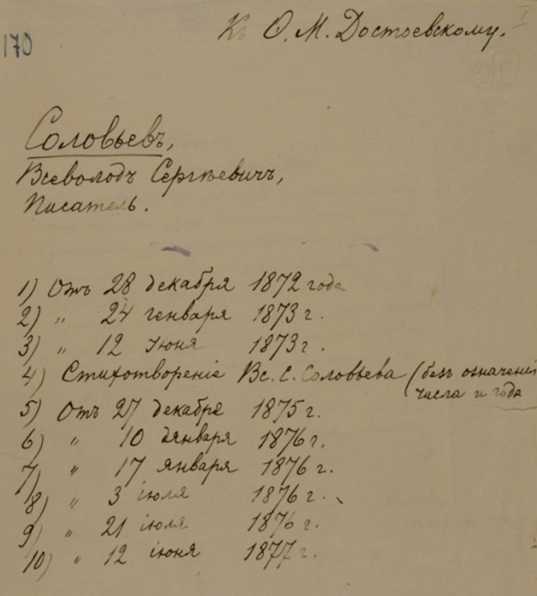 170
I
Къ Ѳ. М. Достоевскому.
Соловьевъ,
Всеволодъ Сергѣевичъ,
писатель.
1) Отъ 28 декабря 1872 года
2) „ 24 генваря 1873 г.
3) „ 12 іюня 1873 г.
4) Стихотвореніе Вс. С. Соловьева (безъ означені
числа и года
5) Отъ 27 декабря 1875 г.
6) „ 10 января 1876 г.
7) „ 17 января 1876 г.
8) „ 3 іюля 1876 г.
9) „ 21 іюля 1876 г.
10) „ 12 іюня 1877 г.